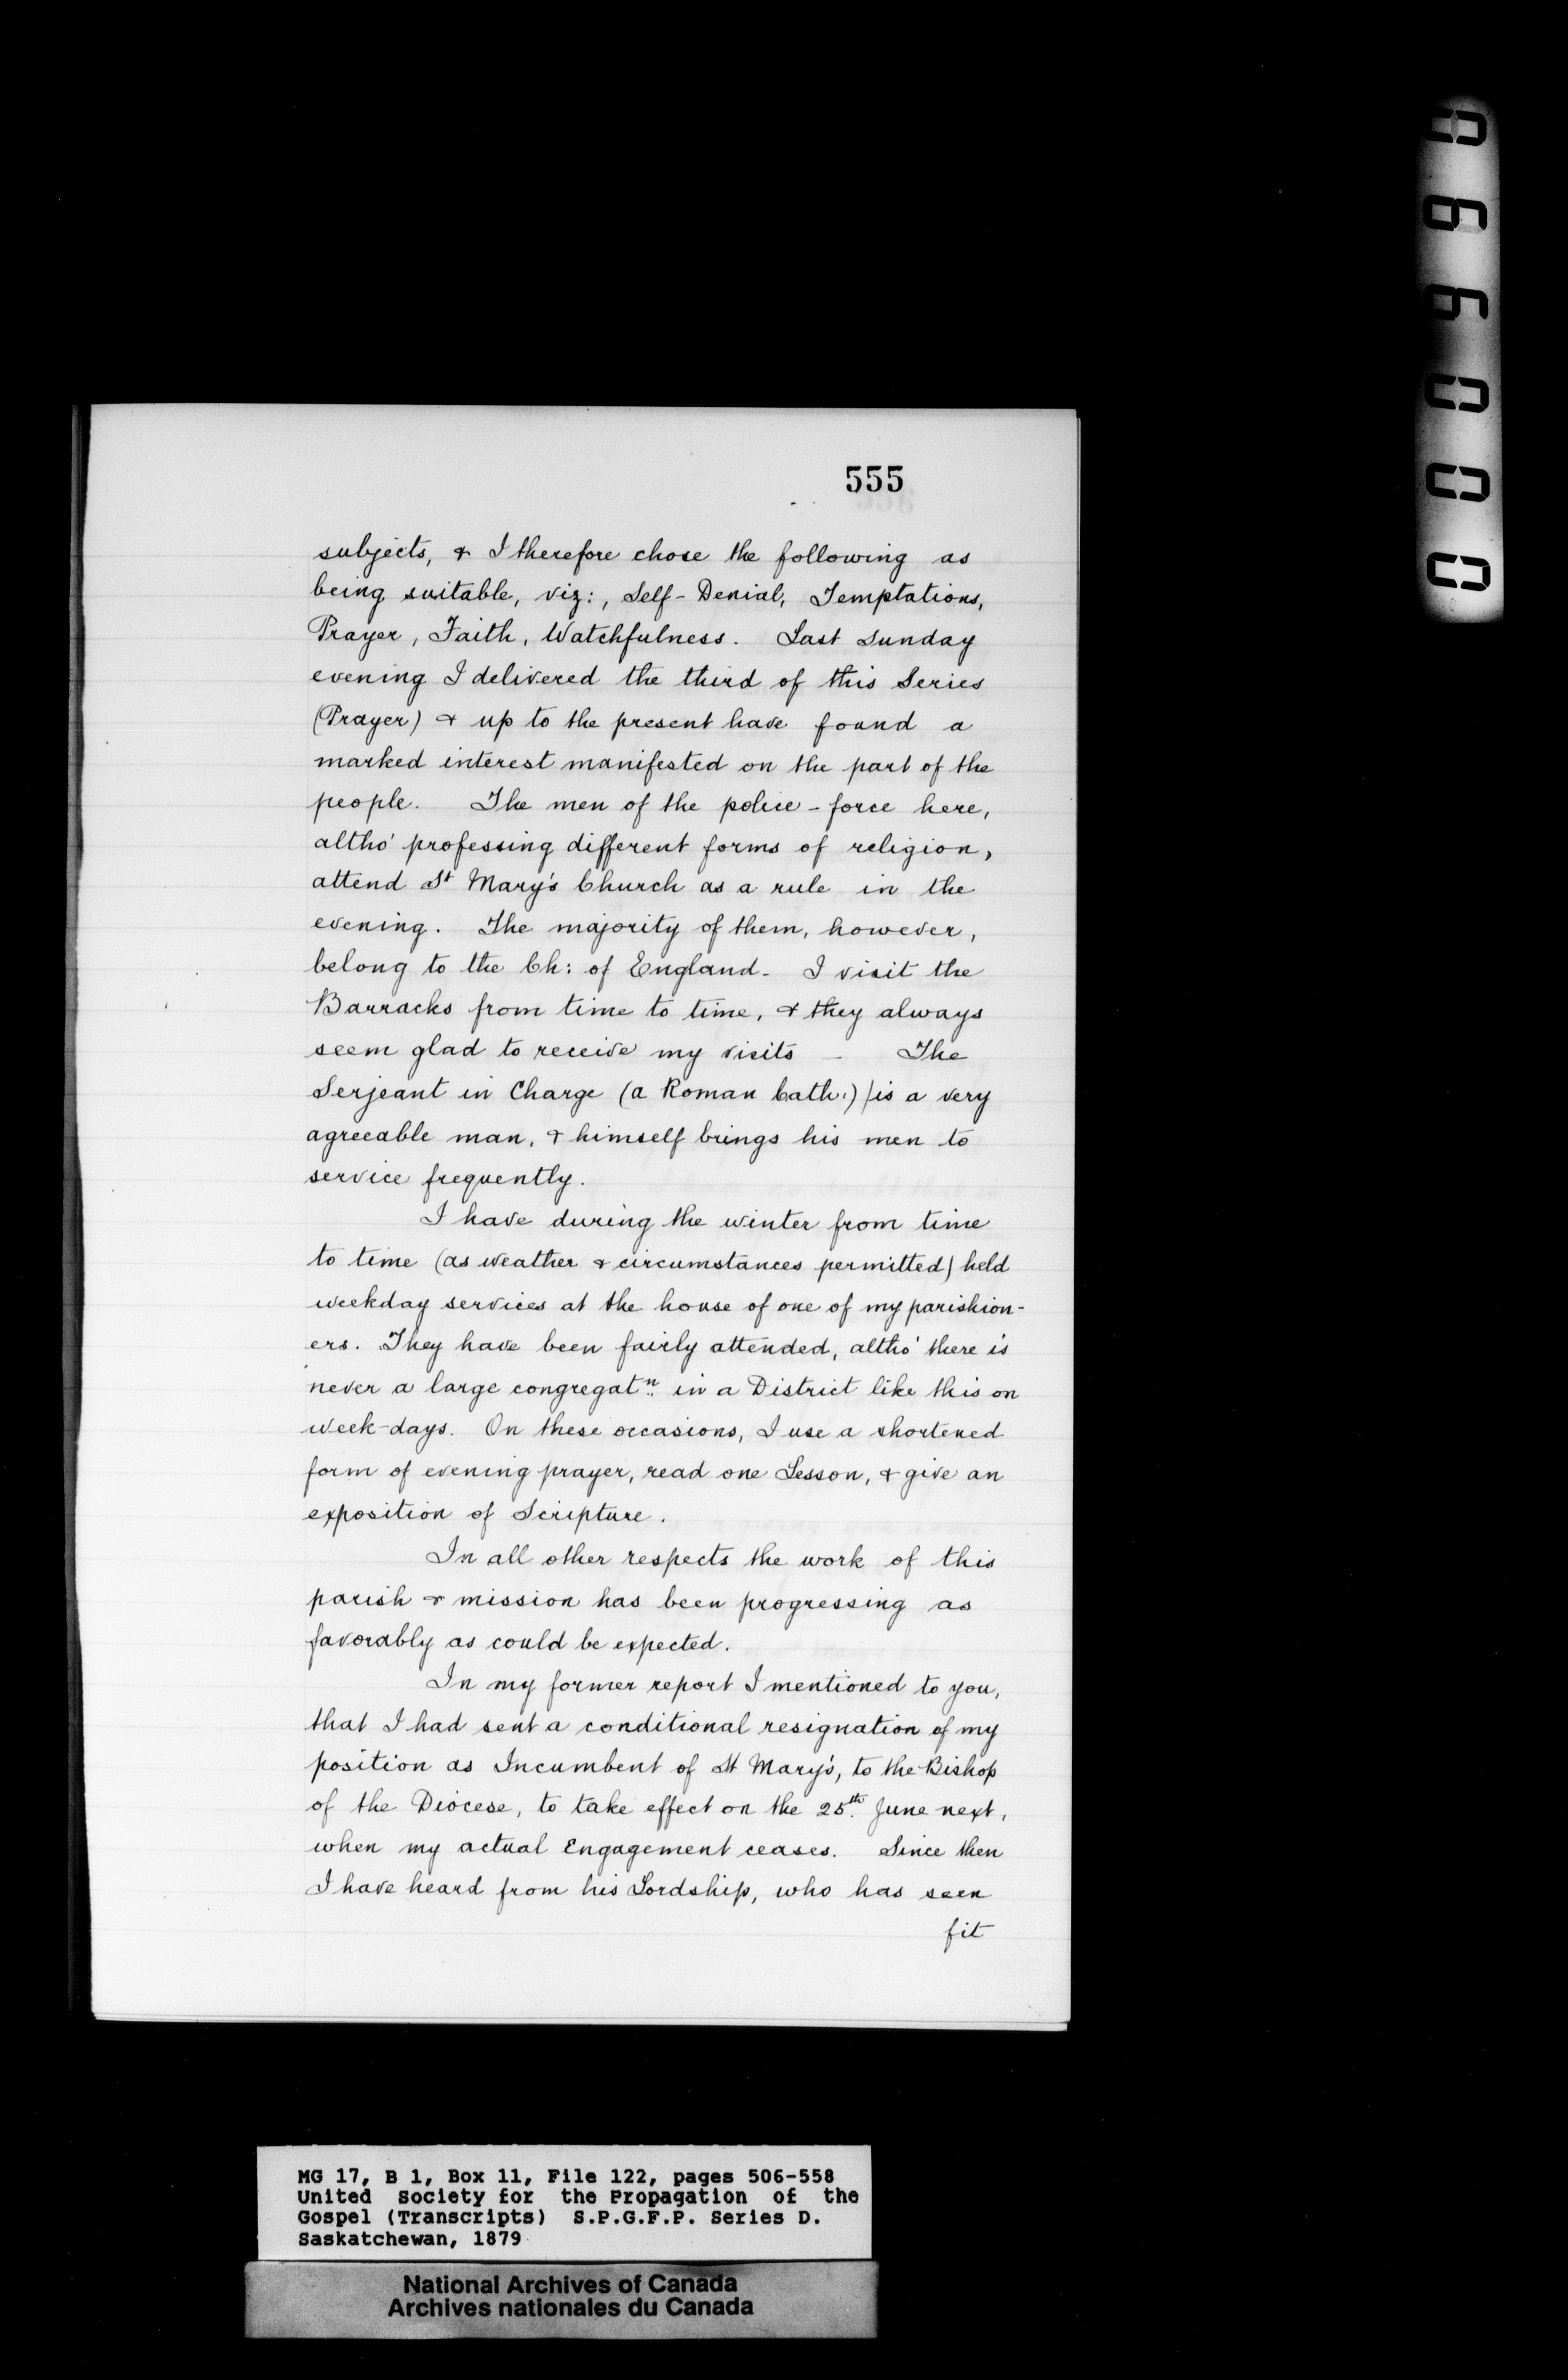 555
subjects, & I therefore chose the following as
being suitable, viz:, Self-Denial, Temptations,
Prayer, Faith, Watchfulness. Last Sunday
evening I delivered the third of this Series
(Prayer) & up to the present have found a
marked interest manifested on the part of the
people. The men of the police-force here,
altho' professing different forms of religion,
attend St Mary's Church as a rule in the
evening. The majority of them, however,
belong to the Ch: of England. I visit the
Barracks from time to time, & they always
seem glad to receive my visits — The
Serjeant in Charge (a Roman Cath:) is a very
agreeable man, & himself brings his men to
service frequently.
I have during the winter from time
to time (as weather & circumstances permitted) held
weekday services at the house of one of my parishion-
ers. They have been fairly attended, altho' there is
never a large congregatn. in a District like this on
week-days. On these occasions, I use a shortened
form of evening prayer, read one Lesson, & give an
exposition of Scripture.
In all other respects the work of this
parish & mission has been progressing as
favorably as could be expected.
In my former report I mentioned to you,
that I had sent a conditional resignation of my
position as Incumbent of St Mary's, to the Bishop
of the Diocese, to take effect on the 25th. June next,
when my actual Engagement ceases. Since then
I have heard from his Lordship, who has seen
fit
MG 17, B 1, Box 11, File 122, pages 506-558
United Society for the Propagation of the
Gospel (Transcripts) S.P.G.F.P. Series D.
Saskatchewan, 1879
National Archives of Canada
Archives nationales du Canada